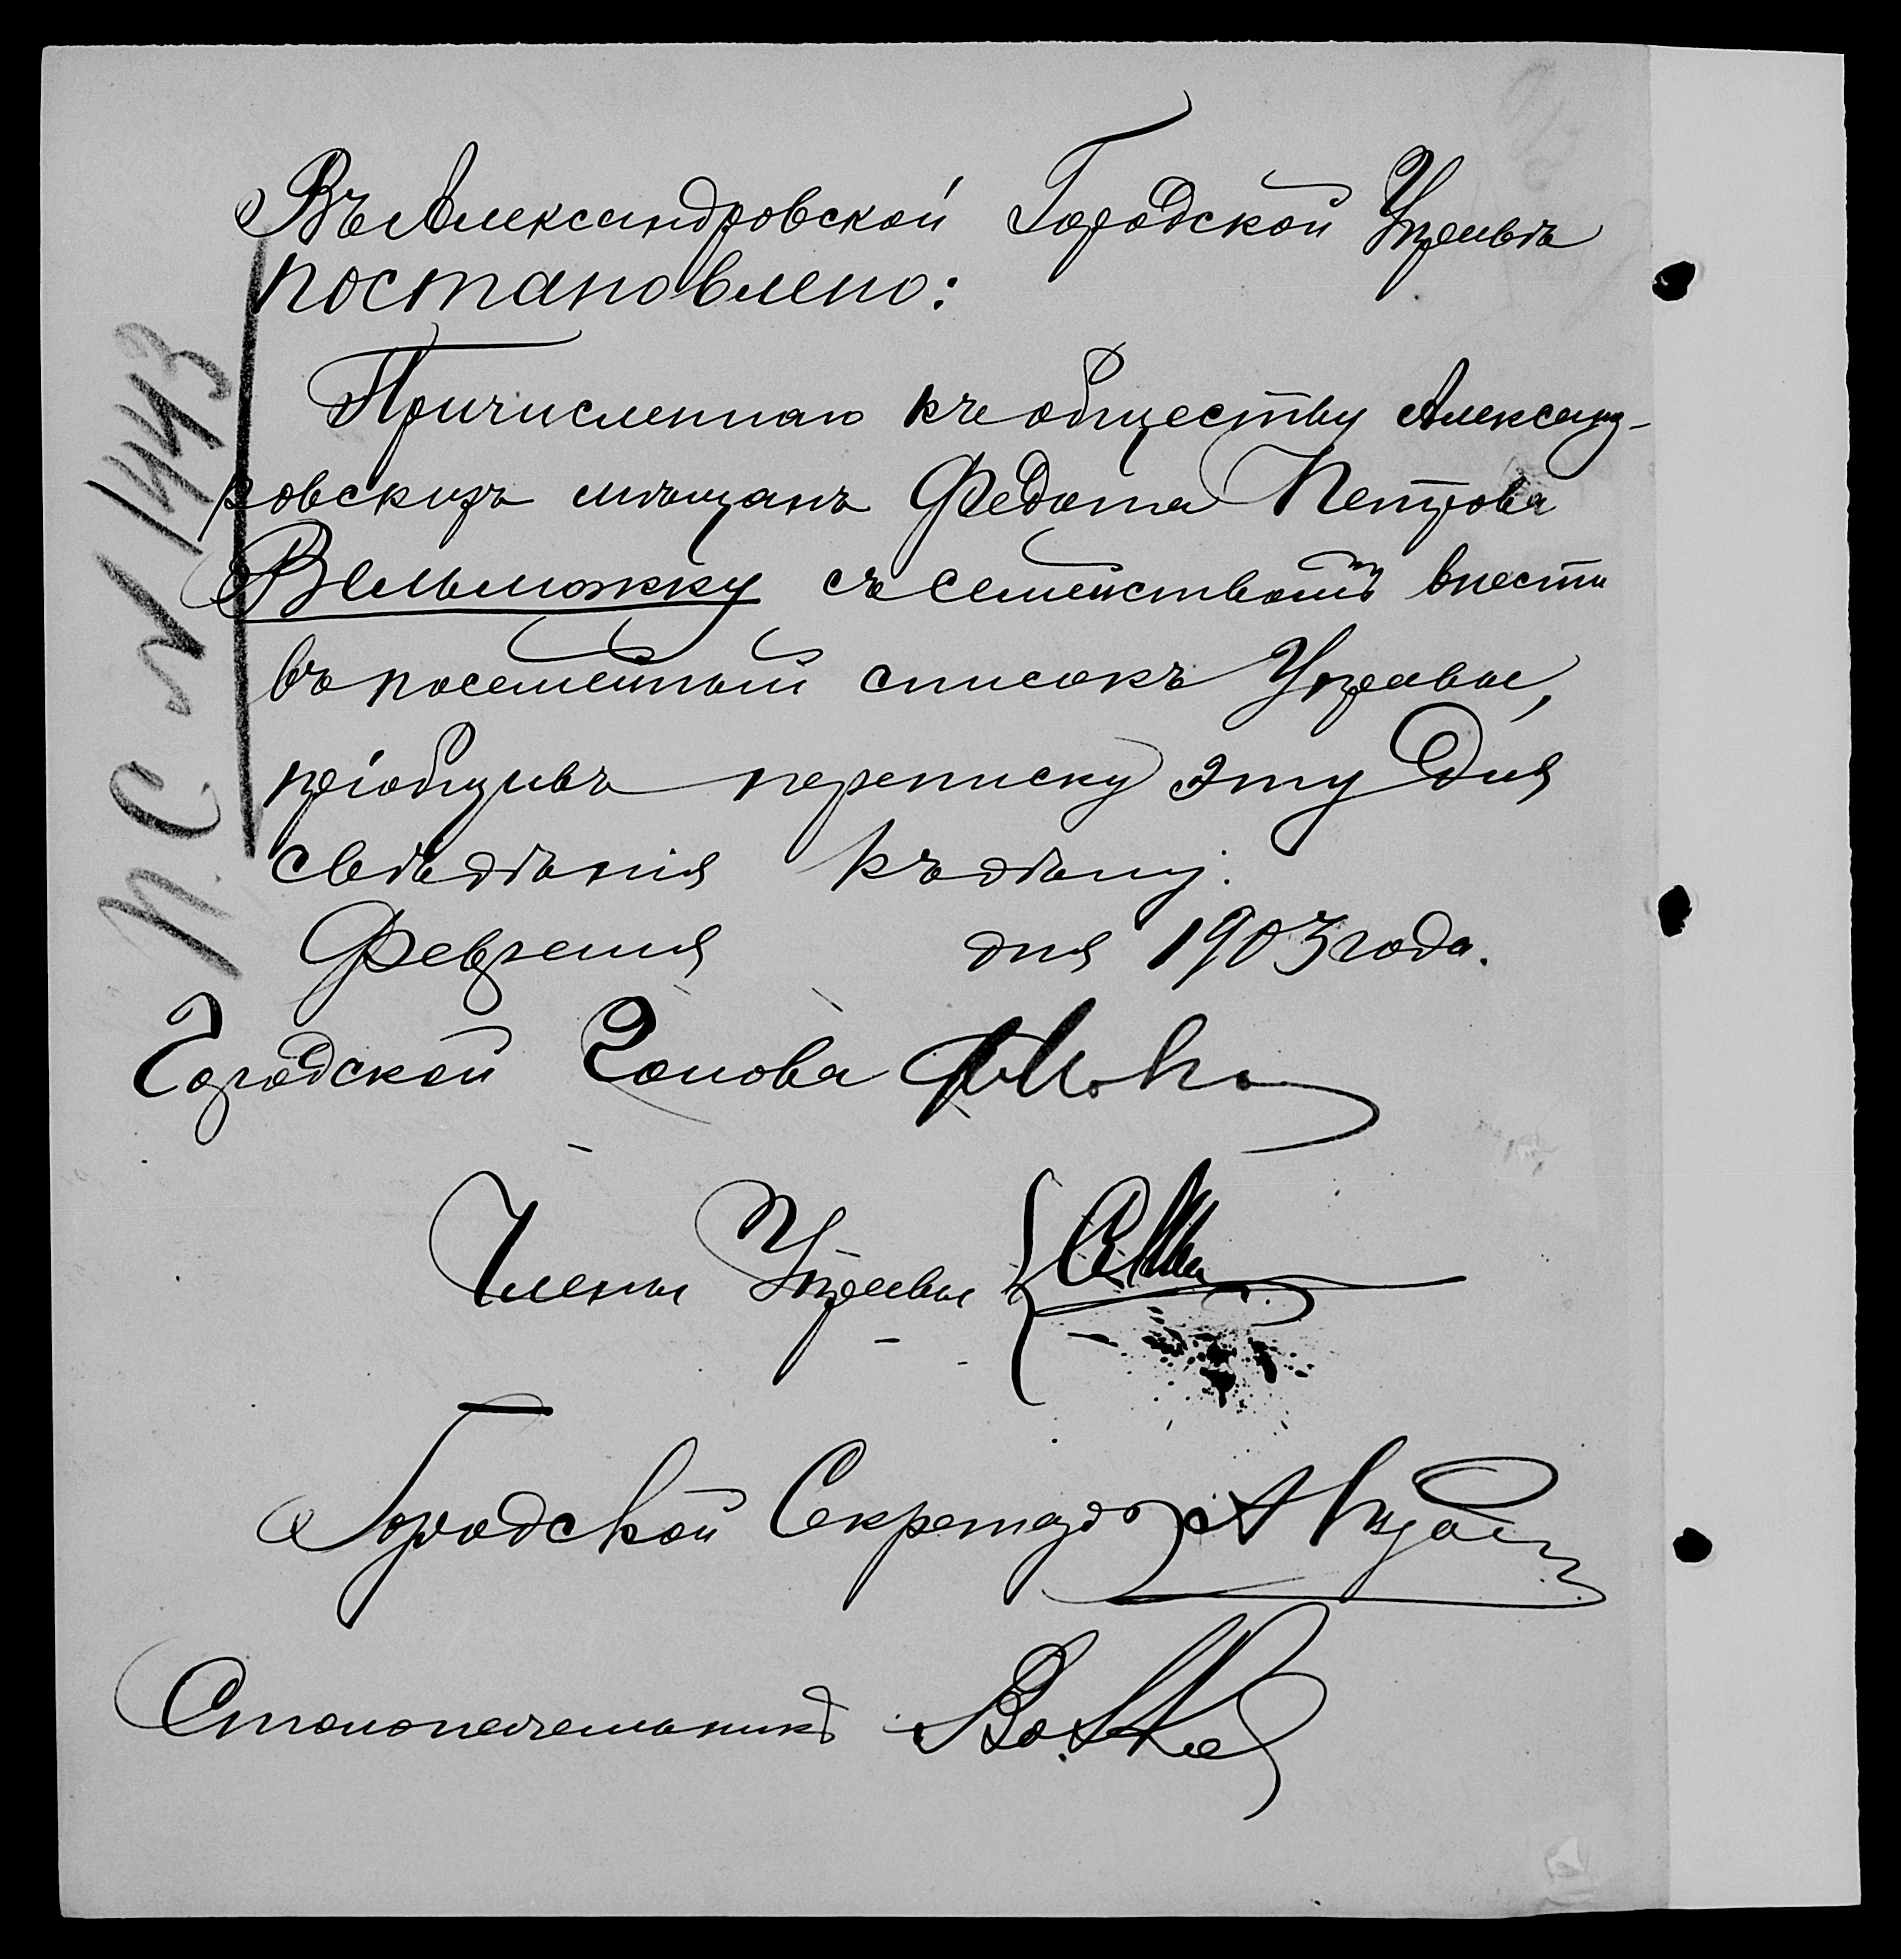 Въ Александровской Городской Управѣ
постановлено:
Причисленнаго къ обществу Александ-
ровскихъ мѣщанъ Федота Петрова
Вельможку съ семействомъ внести
въ посемейный списокъ Управы,
пріобщивъ переписку эту для
свѣдѣнія къ дѣлу.
Февраля дня 1903 года.
Городской Голова
Члены Управы
Городской Секретарь
Столоначальникъ
П. С. № 1443